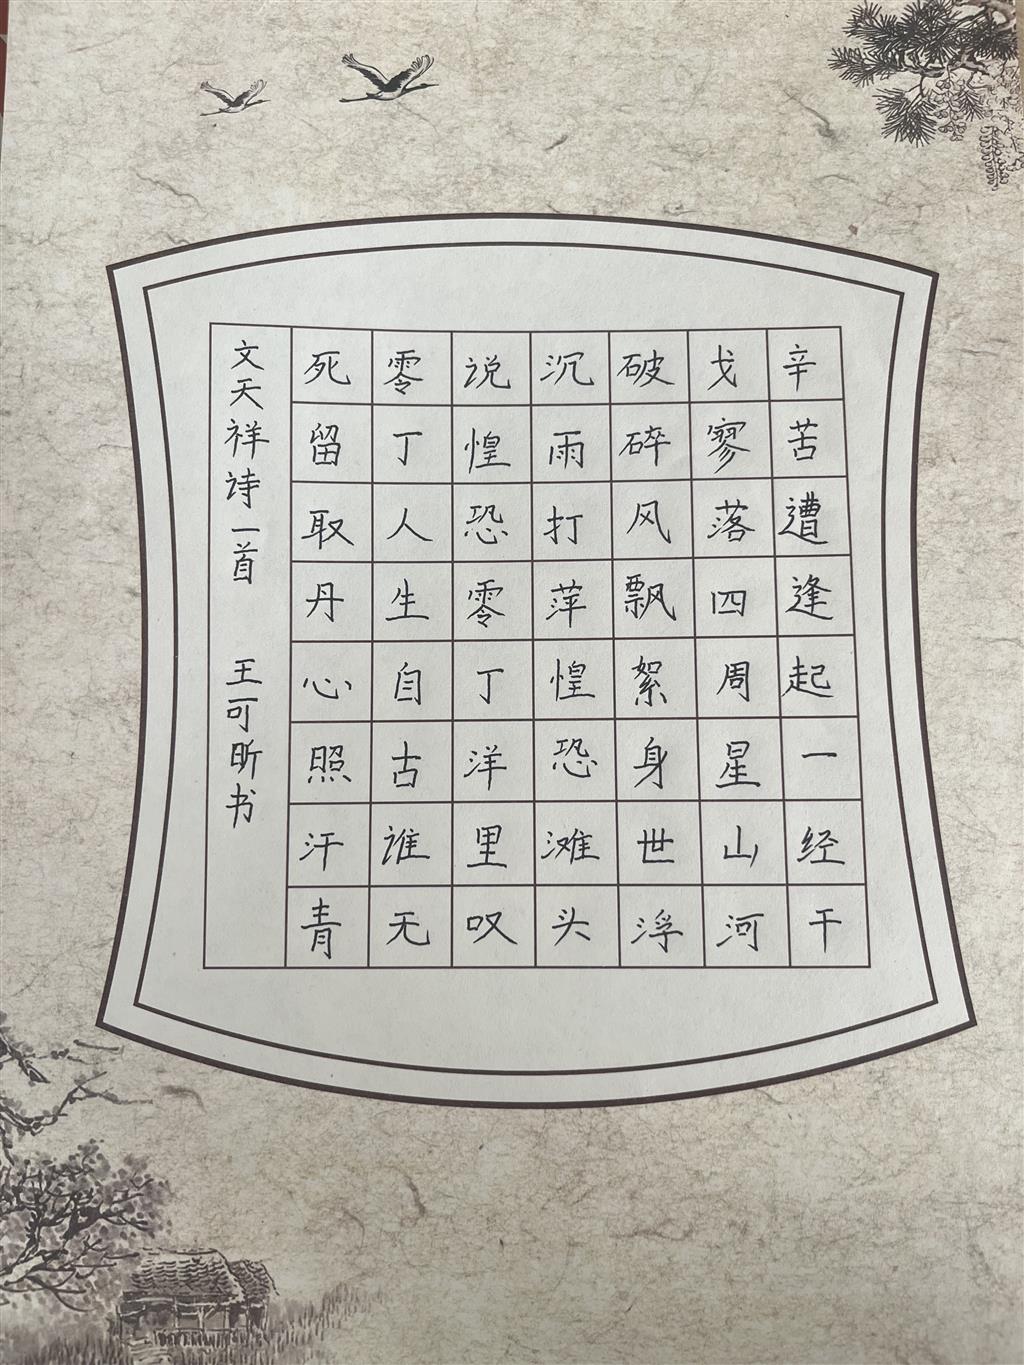 辛苦遭逢起一经干
戈寥落四周星山河
破碎风飘絮身世浮
沉雨打萍惶恐滩头
说惶恐零丁洋里叹
零丁人生自古谁无
死留取丹心照汗青
文天祥诗一首 王可昕书